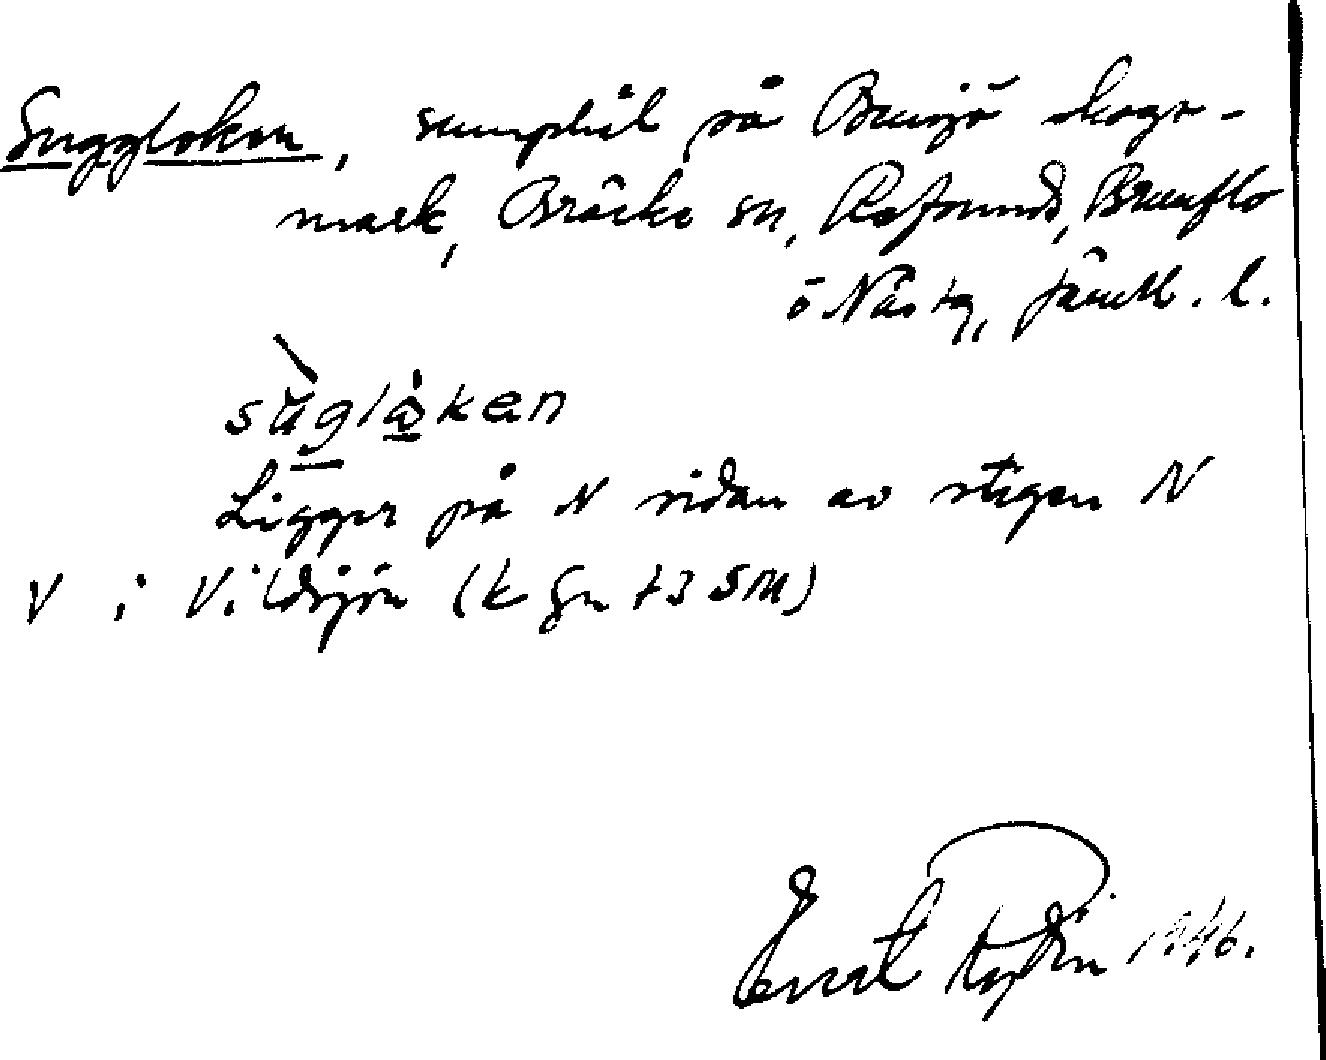 Suggloken, sumphål på Bensjö skogs-
mark, Bräcke sn, Refsunds, Brunflo
o Näs tg, Jämtl. l.
sùglåken
Ligger på N sidan av stigen N
V i Vildsjön (k gn 73 SM)
Ernst 1946.